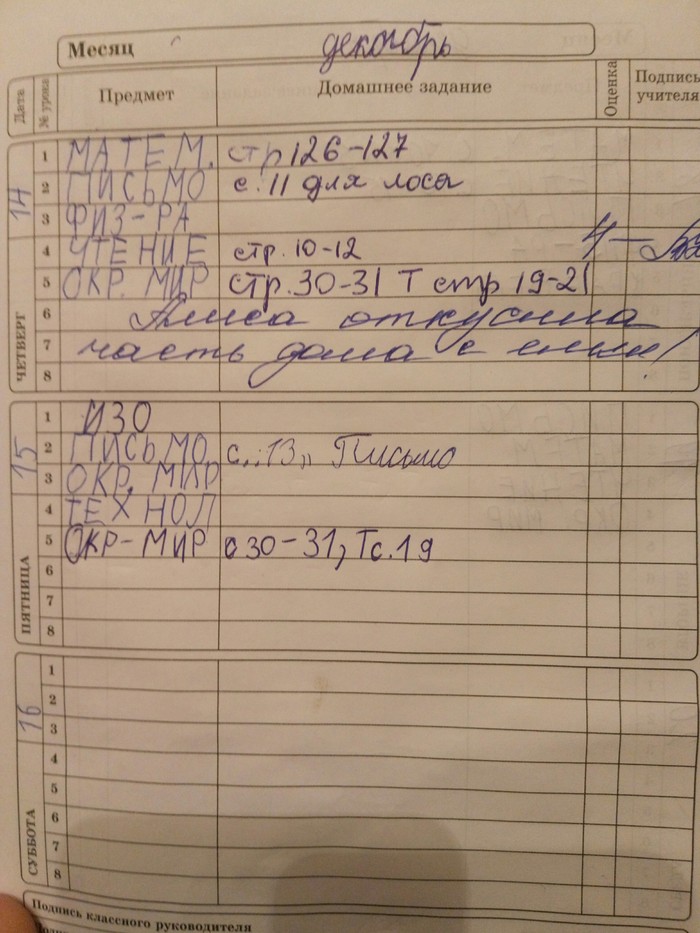 Месяц декабрь
Дата № урока Предмет Домашнее задание Оценка Подпись учителя
14 ЧЕТВЕРГ
1 МАТЕМ. стр 126-127
2 ПИСЬМО с. 11 для лоса
3 ФИЗ-РА
4 ЧТЕНИЕ стр. 10-12 4-
5 ОКР. МИР стр. 30-31 Т стр 19-21
6 Алиса откусила
7 часть дома с елки!
8
15 ПЯТНИЦА
1 ИЗО
2 ПИСЬМО с. „13„ Письмо
3 ОКР. МИР
4 ТЕХНОЛ
5 ОКР-МИР с 30-31, Т с. 19
6
7
8
16 СУББОТА
1
2
3
4
5
6
7
8
Подпись классного руководителя